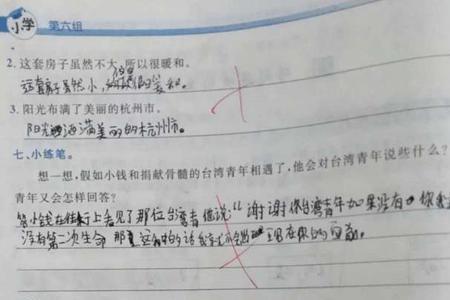 小学 第六组
2. 这套房子虽然不大,所以很暖和。
这套房子虽然小,但很暖和。
3. 阳光布满了美丽的杭州市。
阳光洒满美丽的杭州市。
七、小练笔。
想一想,假如小钱和捐献骨髓的台湾青年相遇了,他会对台湾青年说些什么?
青年又会怎样回答?
小钱在街上看见了那位台湾青年他说“谢谢你台湾青年如果没有你我
没有第二次生命 那 这 的话 出现在你的面前。